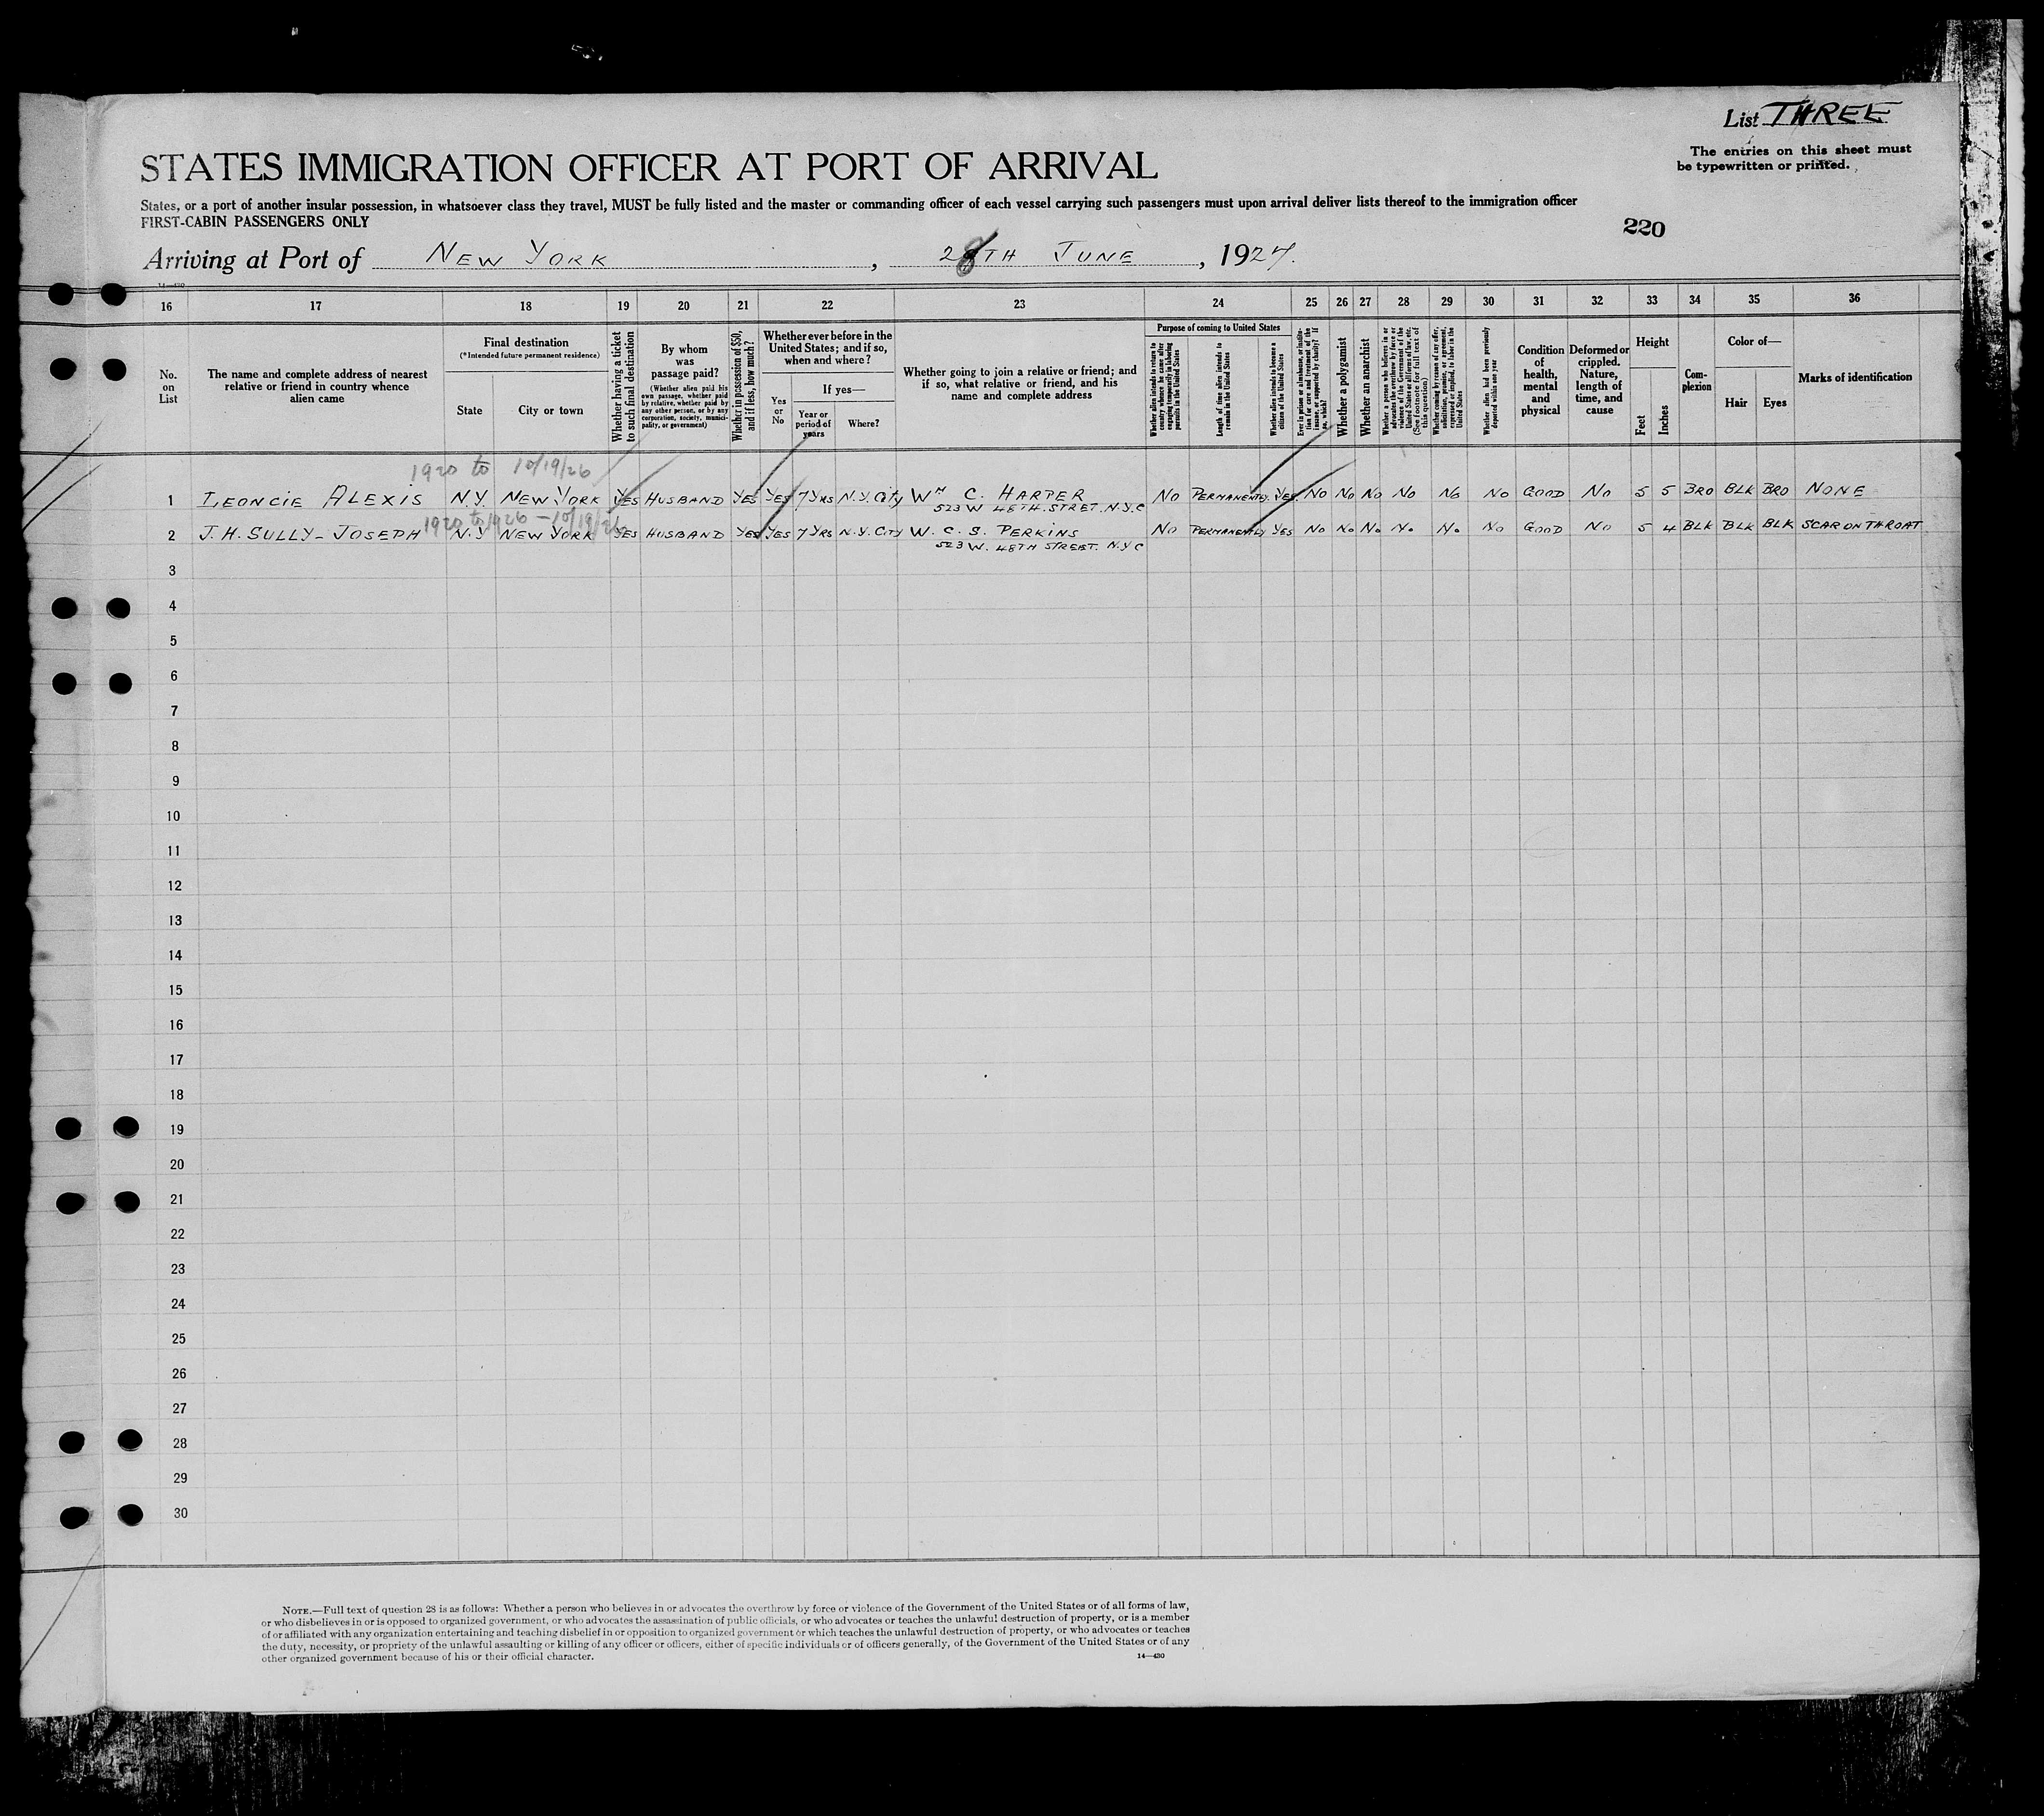 List THREE
The entries on this sheet must
be typewritten or printed.
STATES IMMIGRATION OFFICER AT PORT OF ARRIVAL
States, or a port of another insular possession, in whatsoever class they travel, MUST be fully listed and the master or commanding officer of each vessel carrying such passengers must upon arrival deliver lists thereof to the immigration officer
FIRST-CABIN PASSENGERS ONLY
220
Arriving at Port of NEW YORK, 28TH JUNE, 1927.
16 17 18 19 20 21 22 23 24 25 26 27 28 29 30 31 32 33 34 35 36
No.
on
List
The name and complete address of nearest
relative or friend in country whence
alien came
Final destination
(*Intended future permanent residence)
State
City or town
Whether having a ticket
to such final destination
By whom
was
passage paid?
(Whether alien paid his
own passage, whether paid
by relative, whether paid by
any other person, or by any
corporation, society, munici-
pality, or government)
Whether in possession of $50,
and if less, how much?
Whether ever before in the
United States; and if so,
when and where?
Yes
or
No
If yes—
Year or
period of
years
Where?
Whether going to join a relative or friend; and
if so, what relative or friend, and his
name and complete address
Purpose of coming to United States
Whether alien intends to return to
country whence he came after
engaging temporarily in laboring
pursuits in the United States
Length of time alien intends to
remain in the United States
Whether alien intends to become a
citizen of the United States
Ever in prison or almshouse, or institu-
tion for care and treatment of the
insane, or supported by charity? If
so, which?
Whether a polygamist
Whether an anarchist
Whether a person who believes in or
advocates the overthrow by force or
violence of the Government of the
United States or all forms of law, etc.
(See footnote for full text of
this question)
Whether coming by reason of any offer,
solicitation, promise, or agreement,
expressed or implied, to labor in the
United States
Whether alien had been previously
deported within one year
Condition
of
health,
mental
and
physical
Deformed or
crippled.
Nature,
length of
time, and
cause
Height
Feet
Inches
Com-
plexion
Color of—
Hair
Eyes
Marks of identification
1920 to 10/19/26
1 LEONCIE ALEXIS N.Y. NEW YORK YES HUSBAND YES YES 7 YRS N.Y. City WM C. HARPER NO PERMANENTLY. YES. NO NO NO NO NO NO GOOD NO 5 5 BRO BLK BRO NONE
523 W 48TH. STRET. N.Y.C
1920 to 1926 - 10/19/26
2 J. H. SULLY-JOSEPH N.Y NEW YORK YES HUSBAND YES YES 7 YRS N.Y. CITY W. C. S. PERKINS NO PERMANENTLY YES NO NO NO NO NO NO GOOD NO 5 4 BLK BLK BLK SCAR ON THROAT
523 W. 48TH STREET. N.Y C
3
4
5
6
7
8
9
10
11
12
13
14
15
16
17
18
19
20
21
22
23
24
25
26
27
28
29
30
NOTE.—Full text of question 28 is as follows: Whether a person who believes in or advocates the overthrow by force or violence of the Government of the United States or of all forms of law,
or who disbelieves in or is opposed to organized government, or who advocates the assassination of public officials, or who advocates or teaches the unlawful destruction of property, or is a member
of or affiliated with any organization entertaining and teaching disbelief in or opposition to organized government or which teaches the unlawful destruction of property, or who advocates or teaches
the duty, necessity, or propriety of the unlawful assaulting or killing of any officer or officers, either of specific individuals or of officers generally, of the Government of the United States or of any
other organized government because of his or their official character.
14—430